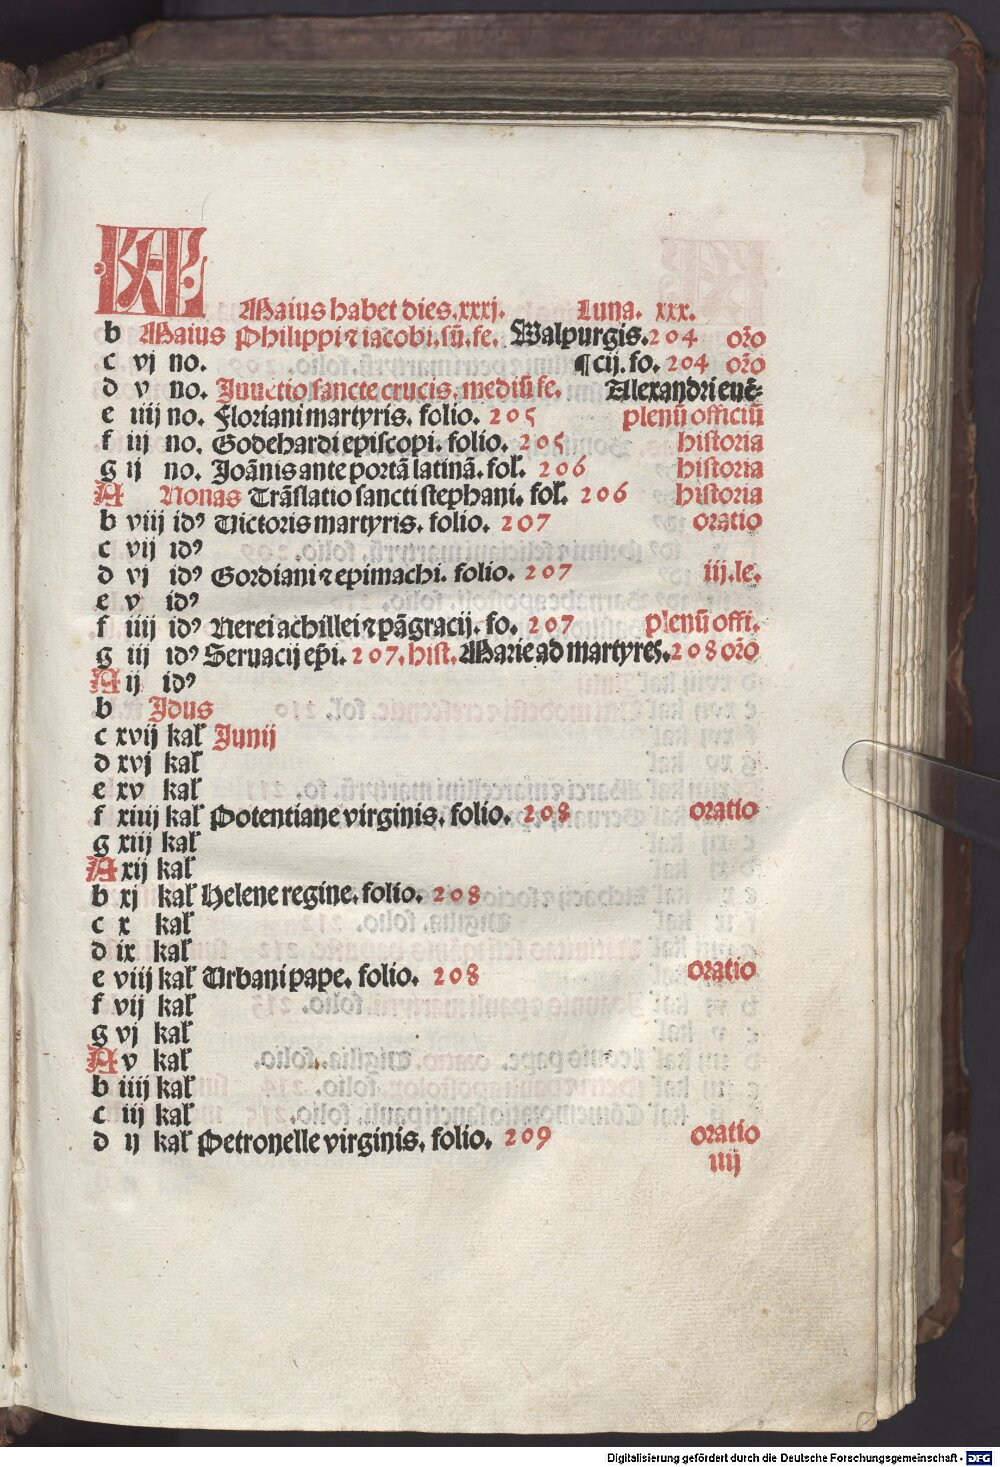 KAL
Maius habet dies.xxxj. Luna. xxx.
b Maius Philippi ⁊ iacobi.sū.fe. Walpurgis.204 oro̅
c vj no. ¶cij.fo.204 oro̅
d v no. Inuētio sancte crucis. mediū fe. Alexandri euē-
e iiij no. Floriani martyris. folio. 205 plenū officiū
f iij no. Godehardi episcopi. folio. 205 historia
g ij no. Joānis ante portā latinā. fol. 206 historia
A Nonas Trāslatio sancti stephani. fol. 206 historia
b viij idꝰ Uictoris martyris. folio. 207 oratio
c vij idꝰ
d vj idꝰ Gordiani ⁊ epimachi. folio. 207 iij.le.
e v idꝰ
f iiij idꝰ Nerei achillei ⁊ pāgracij. fo. 207 plenū offi.
g iij idꝰ Seruacij ep̄i. 207. hist. Marie ad martyres.208 oro̅
A ij idꝰ
b Idus
c xvij kal Junij
d xvj kal
e xv kal
f xiiij kal Potentiane virginis. folio. 208 oratio
g xiij kal
A xij kal
b xj kal Helene regine. folio. 208
c x kal
d ix kal
e viij kal Urbani pape. folio. 208 oratio
f vij kal
g vj kal
A v kal
b iiij kal
c iij kal
d ij kal Petronelle virginis. folio. 209 oratio
iiij
Digitalisierung gefördert durch die Deutsche Forschungsgemeinschaft - DFG